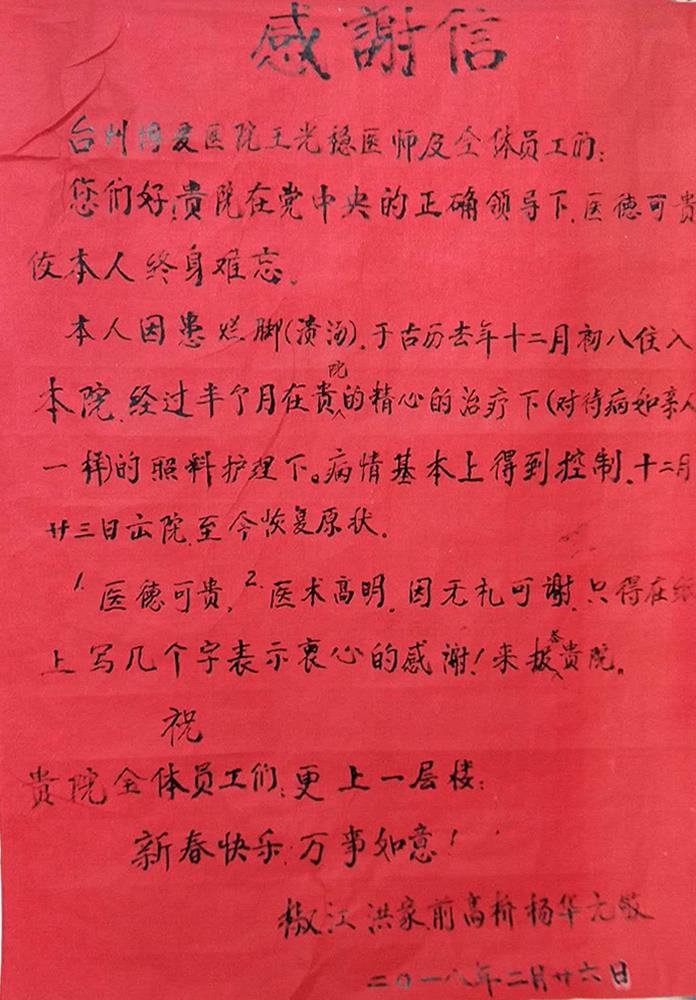 感謝信
台州博爱医院王光稳医师及全体员工们:
您们好,贵院在党中央的正确领导下,医德可贵
使本人终身难忘。
本人因患烂脚(溃汤),于古历去年十二月初八住入
本院,经过半个月在贵院的精心的治疗下(对待病如亲人
一样)的照料护理下。病情基本上得到控制,十二月
廿三日出院,至今恢复原状。
1.医德可贵,2.医术高明,因无礼可谢,只得在纸
上写几个字表示衷心的感谢!来报答贵院。
祝
贵院全体员工们:更上一层楼:
新春快乐,万事如意!
椒江洪家前高桥杨华元敬
二〇一八年二月廿六日